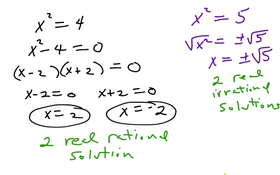 x² = 4
x² - 4 = 0
(x - 2)(x + 2) = 0
x - 2 = 0 x + 2 = 0
x = 2 x = -2
2 real rational
solution
x² = 5
√x² = ±√5
x = ±√5
2 real
irrational
solutions